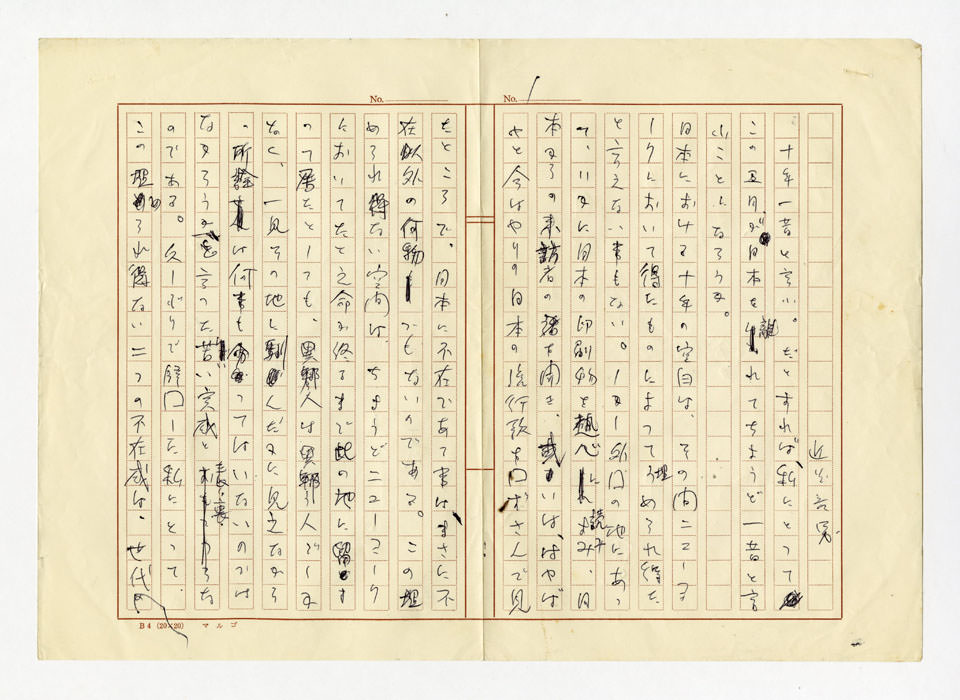 No. 1
十年一昔と言う。だとすれば、私にとって
この五月が日本を離れてちょうど一昔と言
うことになろうか。
日本における十年の空白は、その間ニューヨ
ークにおいて得たものによって埋められ得た
と言えない事もない。しかし外国の地にあっ
て、いかに日本の印刷物を読み、日
本からの来訪者の話を聞き、或いは、はやば
やと今はやりの日本の流行歌を口ずさんで見
No.
たところで、日本に不在であった事は、まさに不
在以外の何物でもないのである。この埋
められ得ない空間は、ちょうどニューヨーク
においてたとえ命が終るまで此の地に留ま
って居たとしても、異郷人は異郷人でしか
なく、一見その地に馴んだかに見えながら
所詮は何事も分ってはいないのでは
なかろうかと言った苦い実感と表裏な
のである。久しぶりで帰国した私にとって、
この埋められ得ない二つの不在感は、世代
B4 (20×20) マルゴ